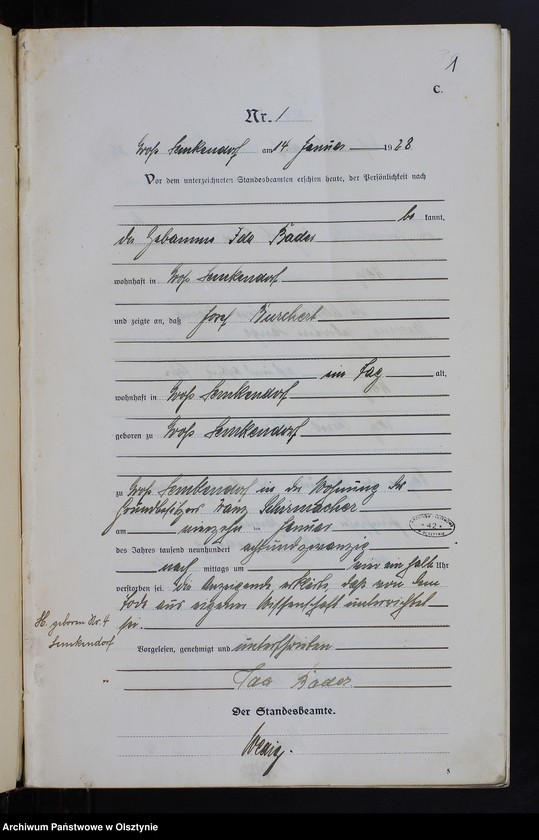 1
C.
Nr. 1
Groß Lemkendorf am 14. Januar 1928
Vor dem unterzeichneten Standesbeamten erschien heute, der Persönlichkeit nach
be kannt,
die Hebamme Ida Bader
wohnhaft in Groß Lemkendorf
und zeigte an, daß Josef Burchert
ein Tag alt,
wohnhaft in Groß Lemkendorf
geboren zu Groß Lemkendorf
zu Groß Lemkendorf in der Wohnung des
Grundbesitzers Franz Schirmacher
am vierzehn ten Januar
des Jahres tausend neunhundert achtundzwanzig
nach mittags um ein halb Uhr
verstorben sei. Die Anzeigende erklärte, daß sie von dem
Tode aus eigener Wissenschaft unterrichtet
sei.
H. geboren Nr. 4
Lemkendorf
Vorgelesen, genehmigt und unterschrieben
Ida Bader
Der Standesbeamte.
42
5
Archiwum Państwowe w Olsztynie